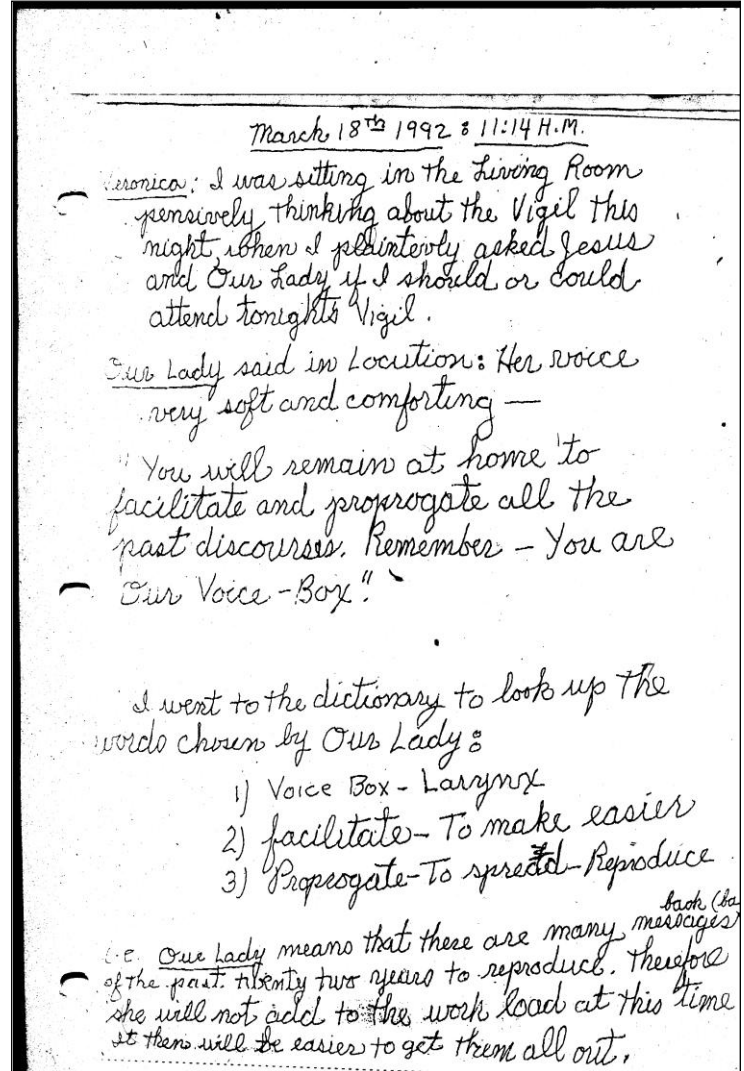 March 18th 1992 : 11:14 A.M.
Veronica: I was sitting in the Living Room
pensively thinking about the Vigil this
night, when I plaintevly asked Jesus
and Our Lady if I should or could
attend tonights Vigil.
Our Lady said in Locution: Her voice
very soft and comforting —
"You will remain at home to
facilitate and proprogate all the
past discourses. Remember – You are
Our Voice-Box".
I went to the dictionary to look up the
words chosen by Our Lady:
1) Voice Box - Larynx
2) facilitate - To make easier
3) Proprogate - To spread - Reproduce
back (ba
i.e. Our Lady means that there are many messages
of the past twenty two years to reproduce. Therefore
she will not add to the work load at this time
it then will be easier to get them all out.